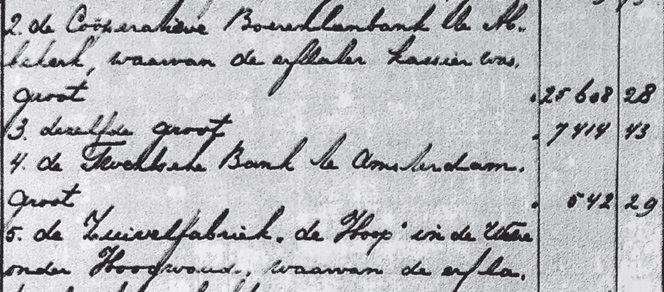 2. de Coöperatieve Boerenleenbank te Ab-
bekerk, waarvan de erflater kassier was,
groot 25608 28
3. dezelfde groot 7414 43
4. de Twentsche Bank te Amsterdam,
groot 542 29
5. de Zuivelfabriek "de Hoop" in de Weere
onder Hoogwoud, waarvan de erfla-